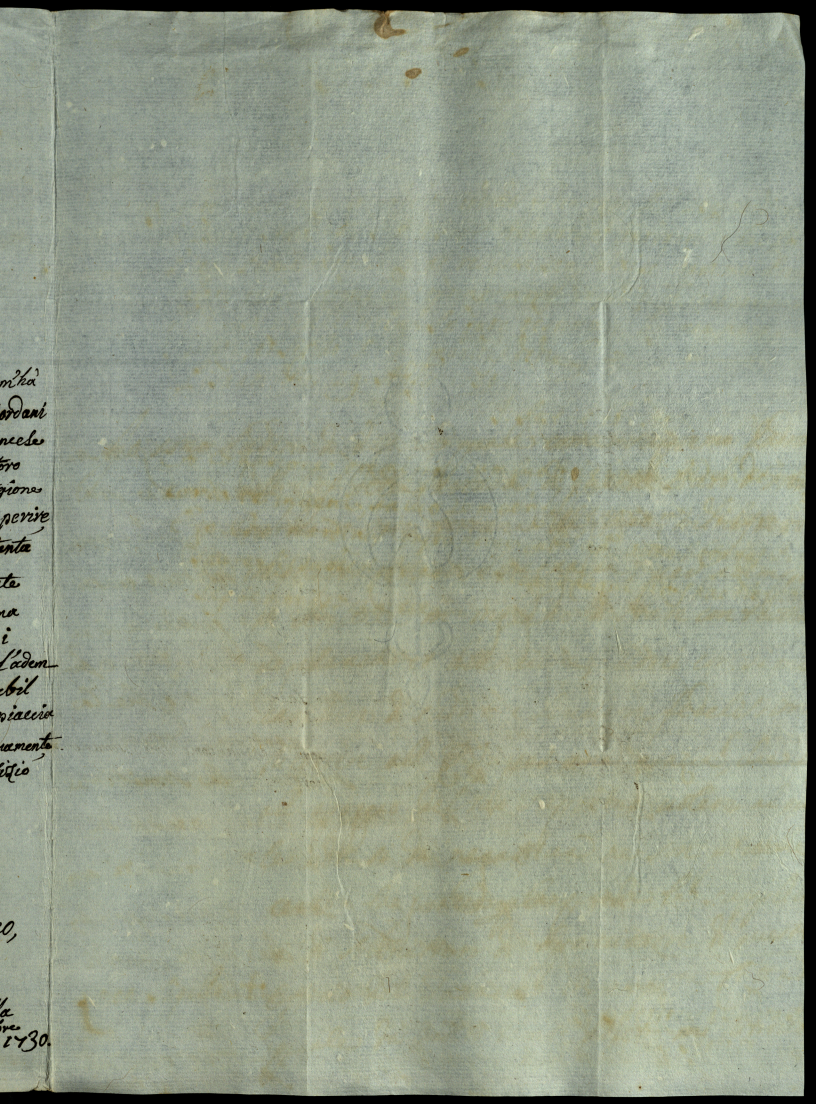 m'hà
ordani
ncese
toro
gione
perire
tentà
te
na
i
L'adem
ebil
piaccia
uamente
izio
o,
la
bre
1730.